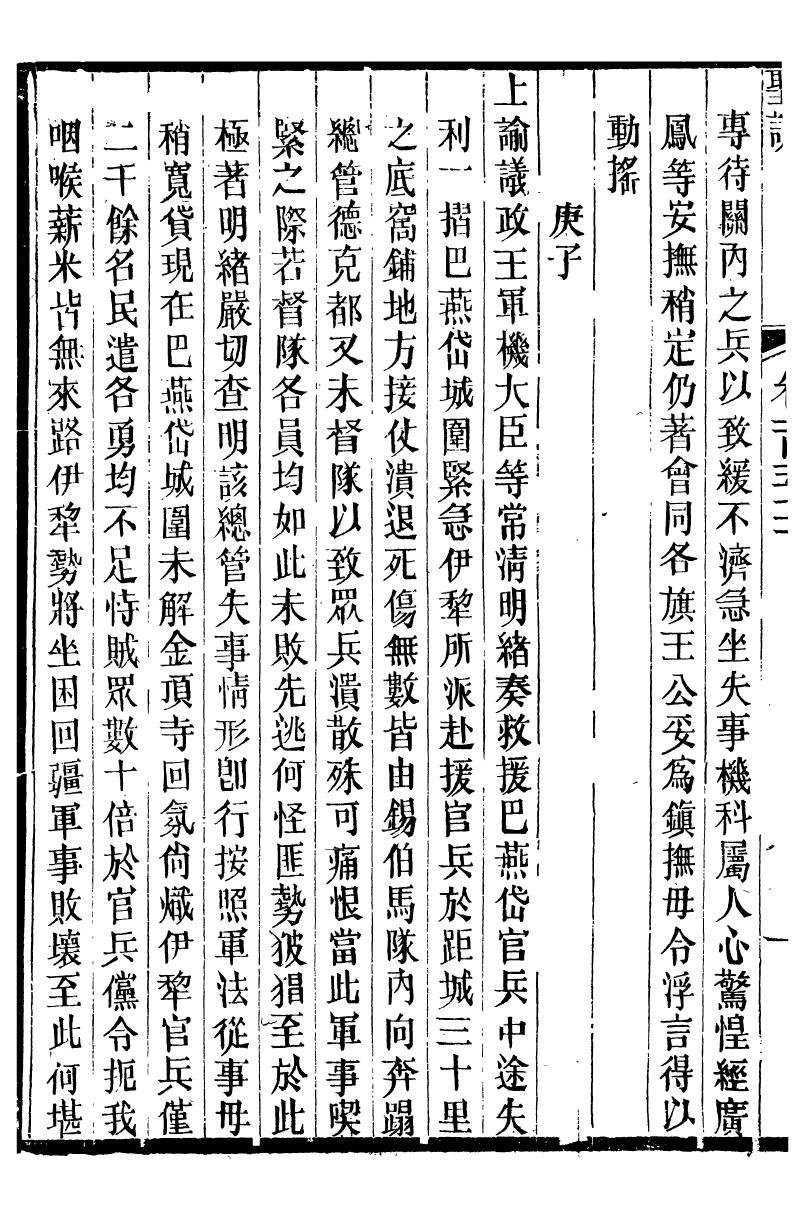 聖訓
專待關內之兵以致緩不濟急坐失事機科屬人心驚惶經廣
鳳等安撫稍定仍著會同各旗王公妥爲鎭撫毋令浮言得以
動搖
庚子
上諭議政王軍機大臣等常淸明緖奏救援巴燕岱官兵中途失
利一摺巴燕岱城圍緊急伊犂所派赴援官兵於距城三十里
之底窩鋪地方接仗潰退死傷無數皆由錫伯馬隊內向奔蹋
總管德克都又未督隊以致眾兵潰散殊可痛恨當此軍事喫
緊之際若督隊各員均如此未敗先逃何怪匪勢披猖至於此
極著明緖嚴切查明該總管失事情形卽行按照軍法從事毋
稍寬貸現在巴燕岱城圍未解金頂寺回氛尙熾伊犂官兵僅
二千餘名民遣各勇均不足恃賊眾數十倍於官兵儻令扼我
咽喉薪米皆無來路伊犂勢將坐困回疆軍事敗壞至此何堪